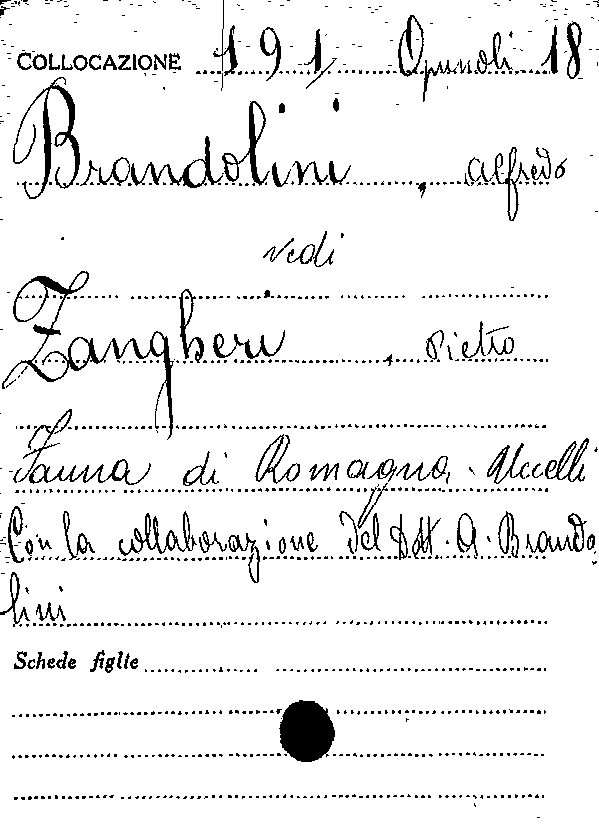 COLLOCAZIONE 191, Opuscoli 18
Brandolini, Alfredo
vedi
Zangheri, Pietro
Fauna di Romagna. Uccelli
Con la collaborazione del Dott. A. Brando
lini
Schede figlie